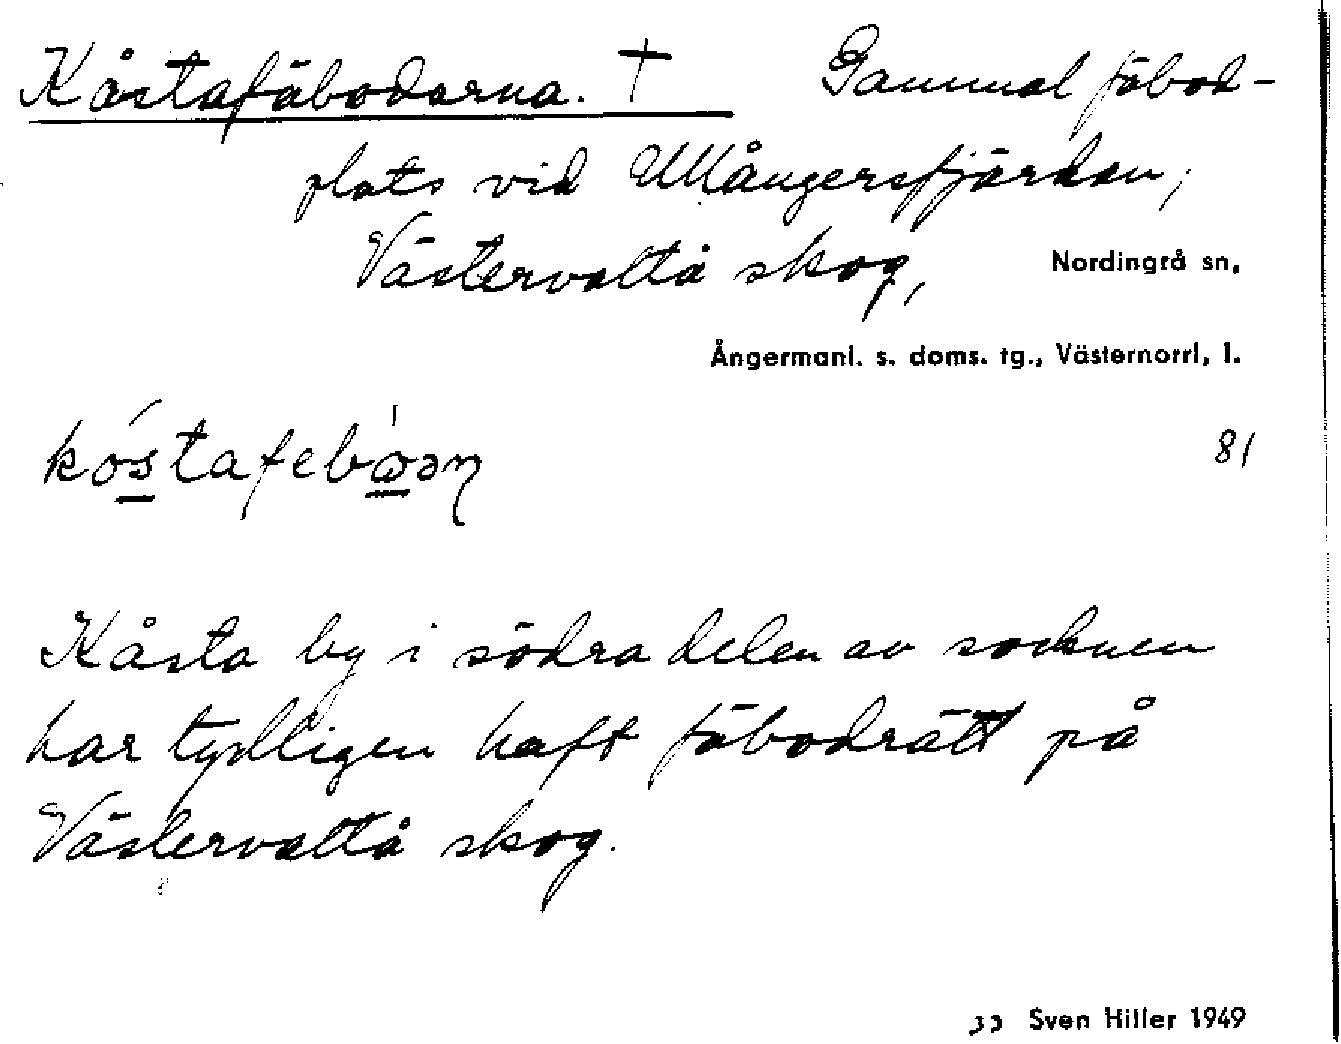 Kåstafäbodarna. † Gammal fäbod-
plats vid Ullångersfjärden,
Västervåltå skog, Nordingrå sn,
Ångermanl. s. doms. tg., Västernorrl, l.
81
Kåsta by i södra delen av socknen
har tydligen haft fäbodrätt på
Västervåltå skog.
Sven Hiller 1949